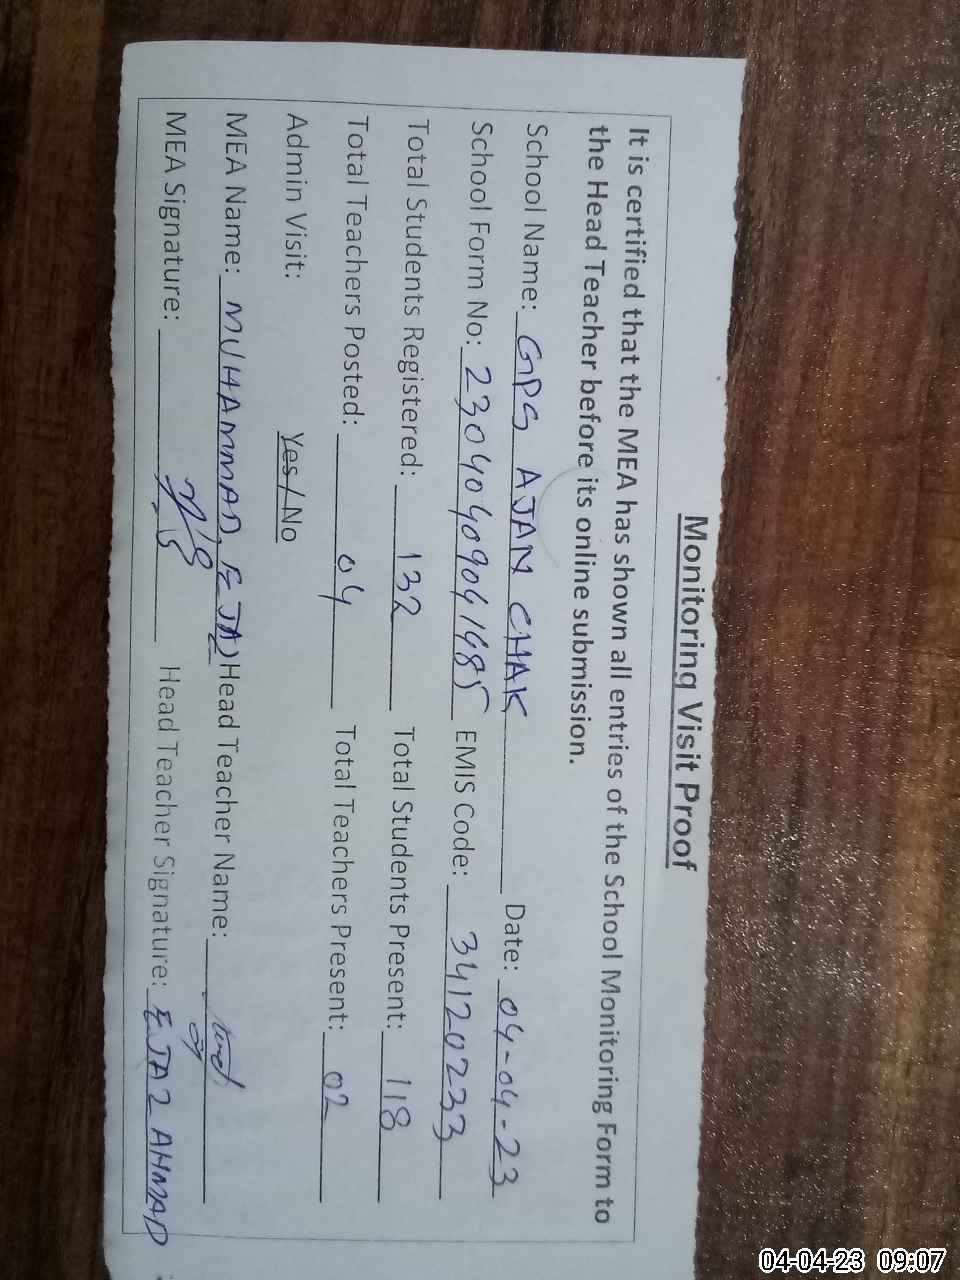 Monitoring Visit Proof
It is certified that the MEA has shown all entries of the School Monitoring Form to
the Head Teacher before its online submission.
School Name: GPS AJAN CHAK Date: 04-04-23
School Form No: 2304040909041985 EMIS Code: 34120233
Total Students Registered: 132 Total Students Present: 118
Total Teachers Posted: 04 Total Teachers Present: 02
Admin Visit: Yes / No
MEA Name: MUHAMMAD EJAZ Head Teacher Name:
MEA Signature: Head Teacher Signature: EJAZ AHMAD
04-04-23 09:07